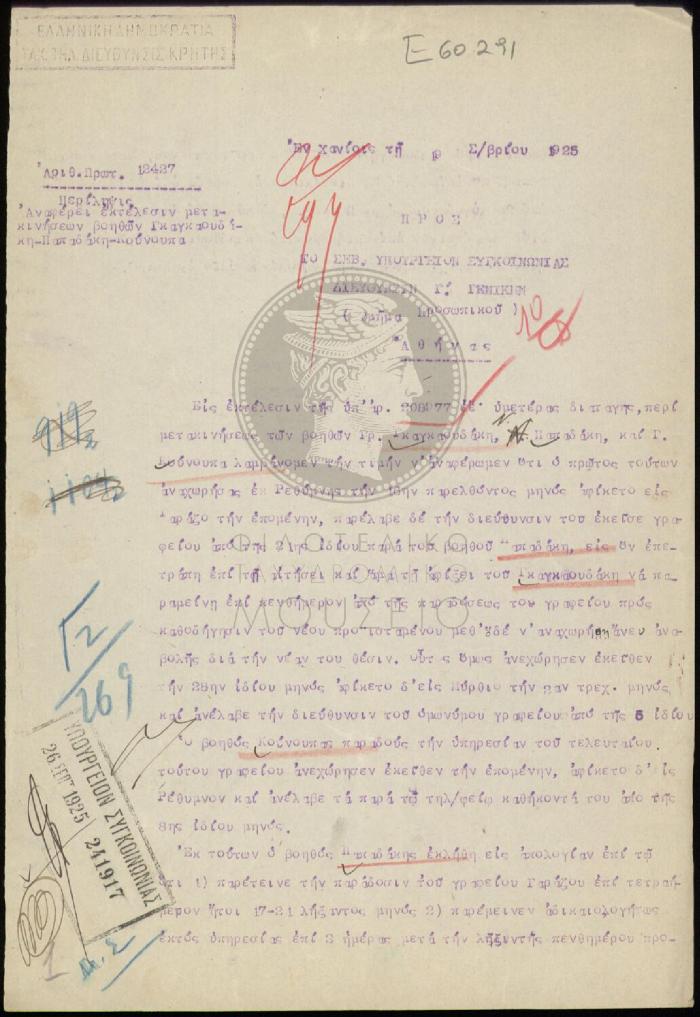 ΕΛΛΗΝΙΚΗ ΔΗΜΟΚΡΑΤΙΑ
ΤΑΧ.ΤΗΛ.ΔΙΕΥΘΥΝΣΙΣ ΚΡΗΤΗΣ
Ε 60291
Ἐν χανίοις τῇ 9 Σ/βρίου 1925
Ἀριθ.Πρωτ. 12427
Περίληψις
Ἀναφέρει ἐκτέλεσιν μετα-
κινήσεων βοηθῶν Γκαγκαουδά-
κη-Παπαδάκη-Κούνουπα
ΠΡΟΣ
ΤΟ ΣΕΒ. ΥΠΟΥΡΓΕΙΟΝ ΣΥΓΚΟΙΝΩΝΙΑΣ
ΔΙΕΥΘΥΝΣΙΝ Γ'. ΓΕΝΙΚΗΝ
( Τμῆμα Προσωπικοῦ )
Ἀθήνας
Εἰς ἐκτέλεσιν τῆς ὑπ'ἀρ. 208977 ὑμετέρας διαταγῆς, περί
μετακινήσεως τῶν βοηθῶν Γρ. Γκαγκαουδάκη, Ν. Παπαδάκη, καί Γ.
Κούνουπα λαμβάνομεν τήν τιμήν ν'ἀναφέρωμεν ὅτι ὁ πρῶτος τούτων
ἀναχωρήσας ἐκ Ρεθύμνης τήν 16ην παρελθόντος μηνός ἀφίκετο εἰς
Γαράζο τήν ἑπομένην, παρέλαβε δέ τήν διεύθυνσιν τοῦ ἐκεῖσε γρα-
φείου ἀπό τῆς 21ης ἰδίου παρά τοῦ βοηθοῦ Παπαδάκη, εἰς ὅν ἐπε-
τράπη ἐπί τῇ αἰτήσει καί ἅμα τῇ ἀφίξει τοῦ Γκαγκαουδάκη νά πα-
ραμείνῃ ἐπί πενθήμερον ἀπό τῆς παραδόσεως τοῦ γραφείου πρός
καθοδήγησιν τοῦ νέου προϊσταμένου μεθ'ὅ δέ ν'ἀναχωρήσῃ ἄνευ ἀνα-
βολῆς διά τήν νέαν του θέσιν. οὗτος ὅμως ἀνεχώρησεν ἐκεῖθεν
τήν 28ην ἰδίου μηνός ἀφίκετο δ'εἰς Πύργο τήν 2αν τρεχ. μηνός
καί ἀνέλαβε τήν διεύθυνσιν τοῦ ὁμωνύμου γραφείου ἀπό τῆς 5 ἰδίου
Ὁ βοηθός Κούνουπας παραδούς τήν ὑπηρεσίαν τοῦ τελευταίου
τούτου γραφείου ἀνεχώρησεν ἐκεῖθεν τήν ἑπομένην, ἀφίκετο δ'εἰς
Ρέθυμνον καί ἀνέλαβε τά παρά τῷ τηλ/φείῳ καθήκοντά του ἀπό τῆς
8ης ἰδίου μηνός.
Ἐκ τούτων ὁ βοηθός Παπαδάκης ἐκλήθη εἰς ἀπολογίαν ἐπί τῷ
ὅτι 1) παρέτεινε τήν παράδοσιν τοῦ γραφείου Γαράζου ἐπί τετραή-
μερον ἤτοι 17-21 λήξαντος μηνός 2) παρέμεινεν ἀδικαιολογήτως
ἐκτός ὑπηρεσίας ἐπί 3 ἡμέρας μετά τήν λῆξιν τῆς πενθημέρου προ-
Γ2/269
ΥΠΟΥΡΓΕΙΟΝ ΣΥΓΚΟΙΝΩΝΙΑΣ
26 ΣΕΠΤ 1925 241917
ΦΙΛΟΤΕΛΙΚΟ
ΤΑΧΥΔΡΟΜΙΚΟ
ΜΟΥΣΕΙΟ